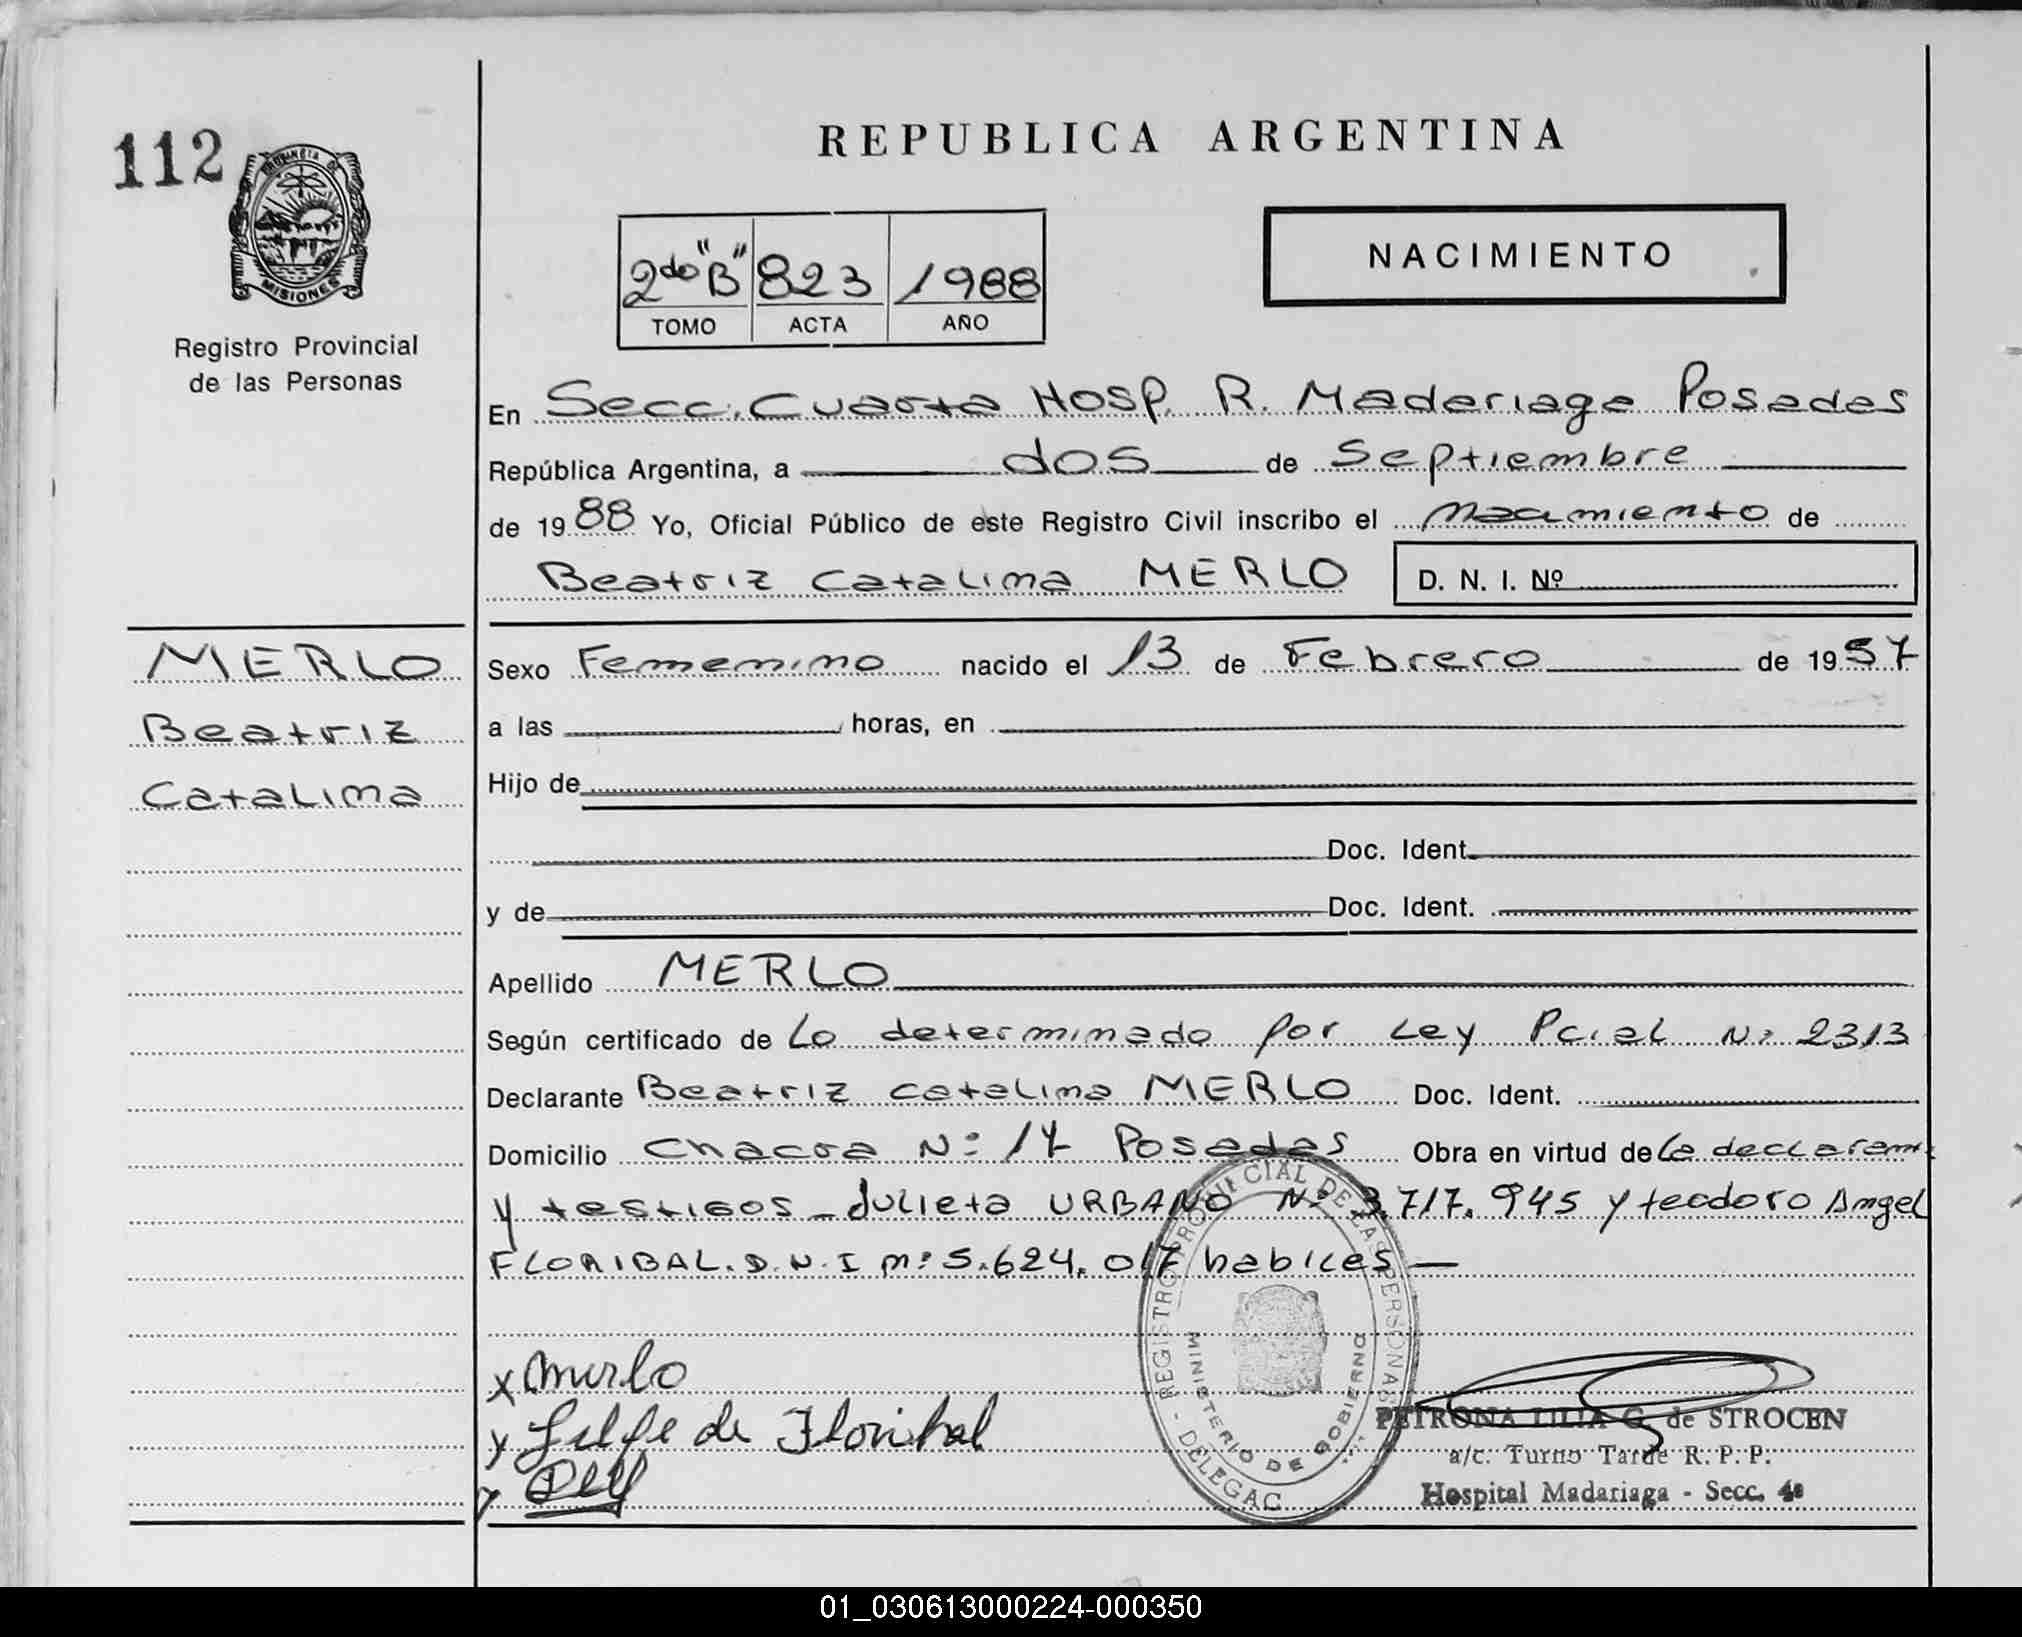 112
PROVINCIA DE
MISIONES
Registro Provincial
de las Personas
REPUBLICA ARGENTINA
2do "B" 823 1988
TOMO ACTA AÑO
NACIMIENTO
En Secc. Cuarta Hosp. R. Maderiaga Posadas
República Argentina, a dos de Septiembre
de 1988 Yo, Oficial Público de este Registro Civil inscribo el Nacimiento de
Beatriz Catalina MERLO D. N. I. Nº
MERLO
Beatriz
Catalina
Sexo Femenino nacido el 13 de Febrero de 1957
a las horas, en
Hijo de
Doc. Ident.
y de Doc. Ident.
Apellido MERLO
Según certificado de Lo determinado por Ley Pcial Nº 2313
Declarante Beatriz Catalina MERLO Doc. Ident.
Domicilio Chacra Nº 17 Posadas Obra en virtud de la declarant
y testigos_Julieta URBANO Nº 3.717.945 y teodoro Angel
FLORIBAL. D.N.I nº 5.624.017 habiles —
x Merlo
y de Floribal
REGISTRO PROVINCIAL DE LAS PERSONAS - DELEGAC
MINISTERIO DE GOBIERNO
PETRONA LILIA G. de STROCEN
a/c. Turno Tarde R. P. P.
Hospital Madariaga - Secc. 4ª
01_030613000224-000350